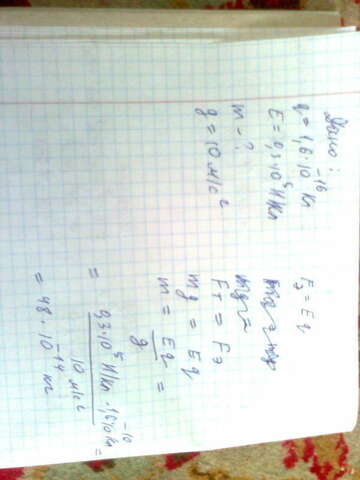 Дано:
q = 1,6·10⁻¹⁶ Кл
E = 0,3·10⁵ Н/Кл
m - ?
g = 10 м/с²
Fэ = Eq
Fт = Fэ
mg = Eq
m = Eq/g =
= 0,3·10⁵ Н/Кл · 1,6·10⁻¹⁶ Кл / 10 м/с² =
= 48·10⁻¹⁴ кг